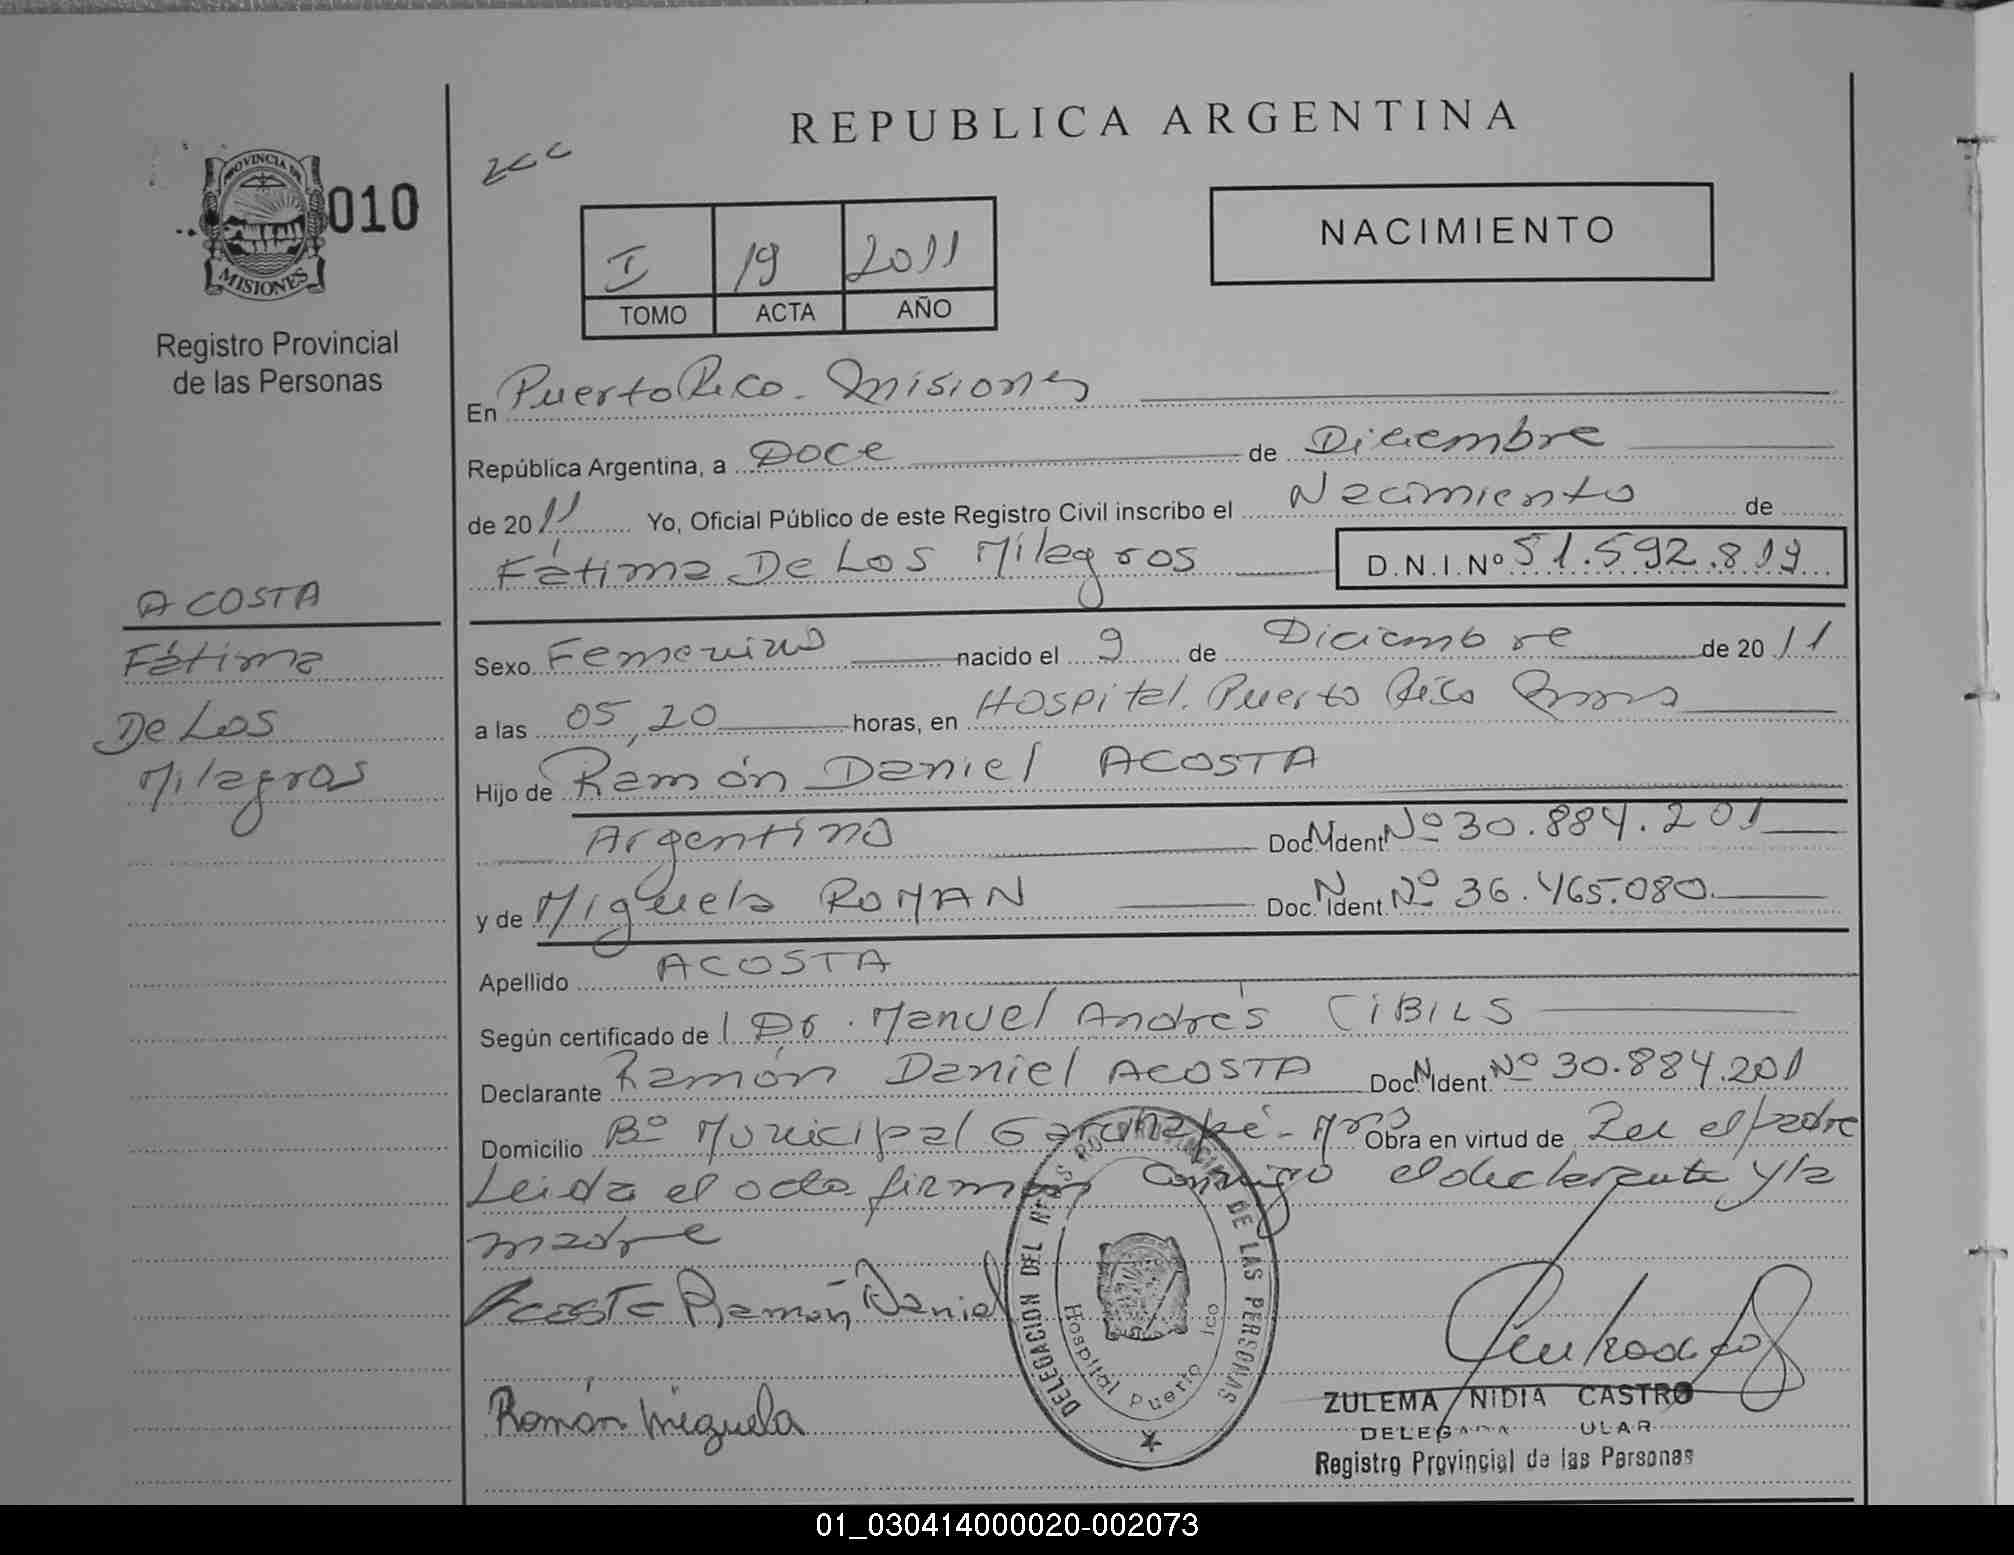 REPUBLICA ARGENTINA
PROVINCIA DE
MISIONES
010
Registro Provincial
de las Personas
I 19 2011
TOMO ACTA AÑO
NACIMIENTO
En Puerto Rico - Misiones
República Argentina, a Doce de Diciembre
de 2011 Yo, Oficial Público de este Registro Civil inscribo el Nacimiento de
Fátima De Los Milagros D.N.I.Nº 51.592.819
ACOSTA
Fátima
De Los
Milagros
Sexo Femenino nacido el 9 de Diciembre de 2011
a las 05,20 horas, en Hospital Puerto Rico Mnes
Hijo de Ramón Daniel ACOSTA
Argentino Doc. N Ident. Nº 30.884.201
y de Miguela ROMAN Doc. N Ident. Nº 36.465.080
Apellido ACOSTA
Según certificado de l Dr. Manuel Andrés CIBILS
Declarante Ramón Daniel ACOSTA Doc. N Ident. Nº 30.884.201
Domicilio Bº Municipal Garuhapé - Mnes Obra en virtud de Ser el padre
Leida el acta firman conmigo el declarante y la
madre
Acosta Ramón Daniel
Román Miguela
DELEGACION DEL REGISTRO PROVINCIAL DE LAS PERSONAS
Hospital Puerto ico
ZULEMA NIDIA CASTRO
DELEGADA ULAR
Registro Provincial de las Personas
01_030414000020-002073